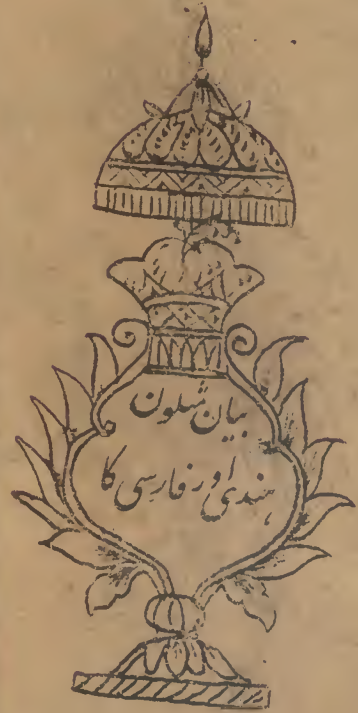 بیان مثلون
ہندی اور فارسی کا